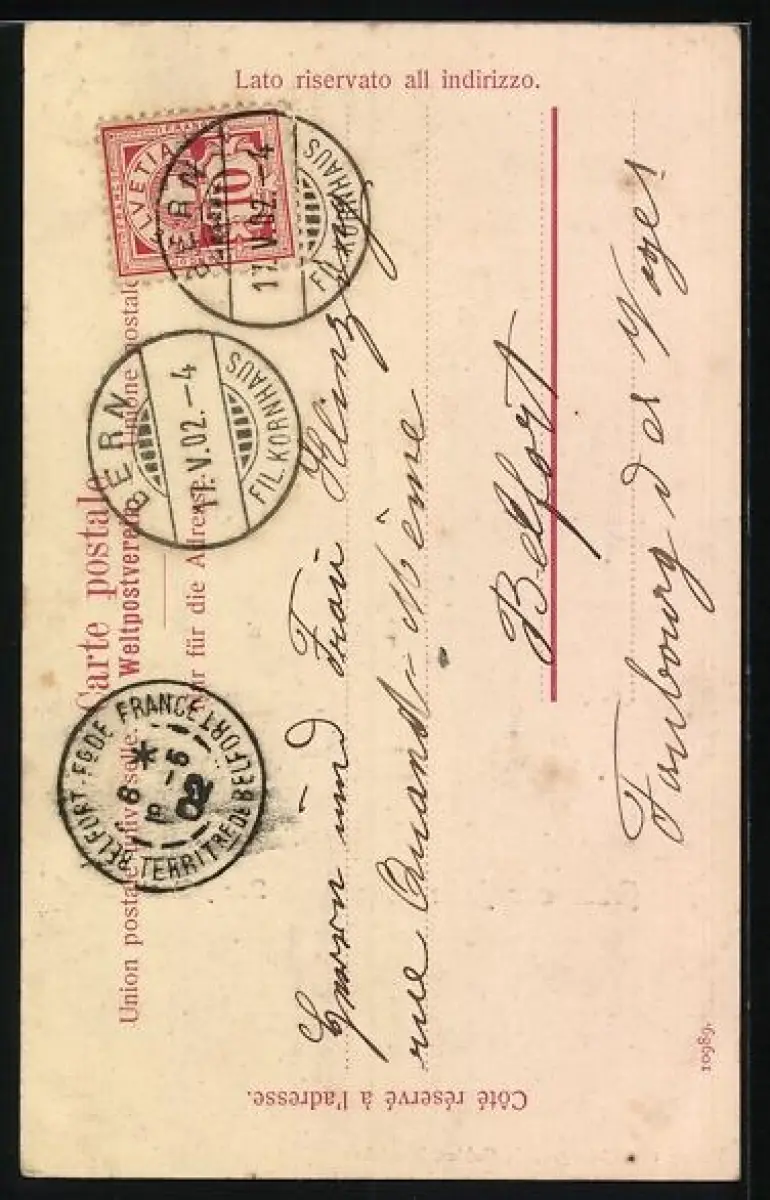 Lato riservato all indirizzo.
Carte postale
Weltpostverein.
Union postale universelle. Unione postale
Nur für die Adresse.
HELVETIA
10
BERN
17.V.02.-4
FIL. KORNHAUS
BERN
17.V.02.-4
FIL. KORNHAUS
BELFORT-FG DE FRANCE
8 -5
02
TERRIT RE DE BELFORT
Herrn und Frau
rue Quand-Même
Belfort
Faubourg des Vosges
Côté réservé à l'adresse.
10989.